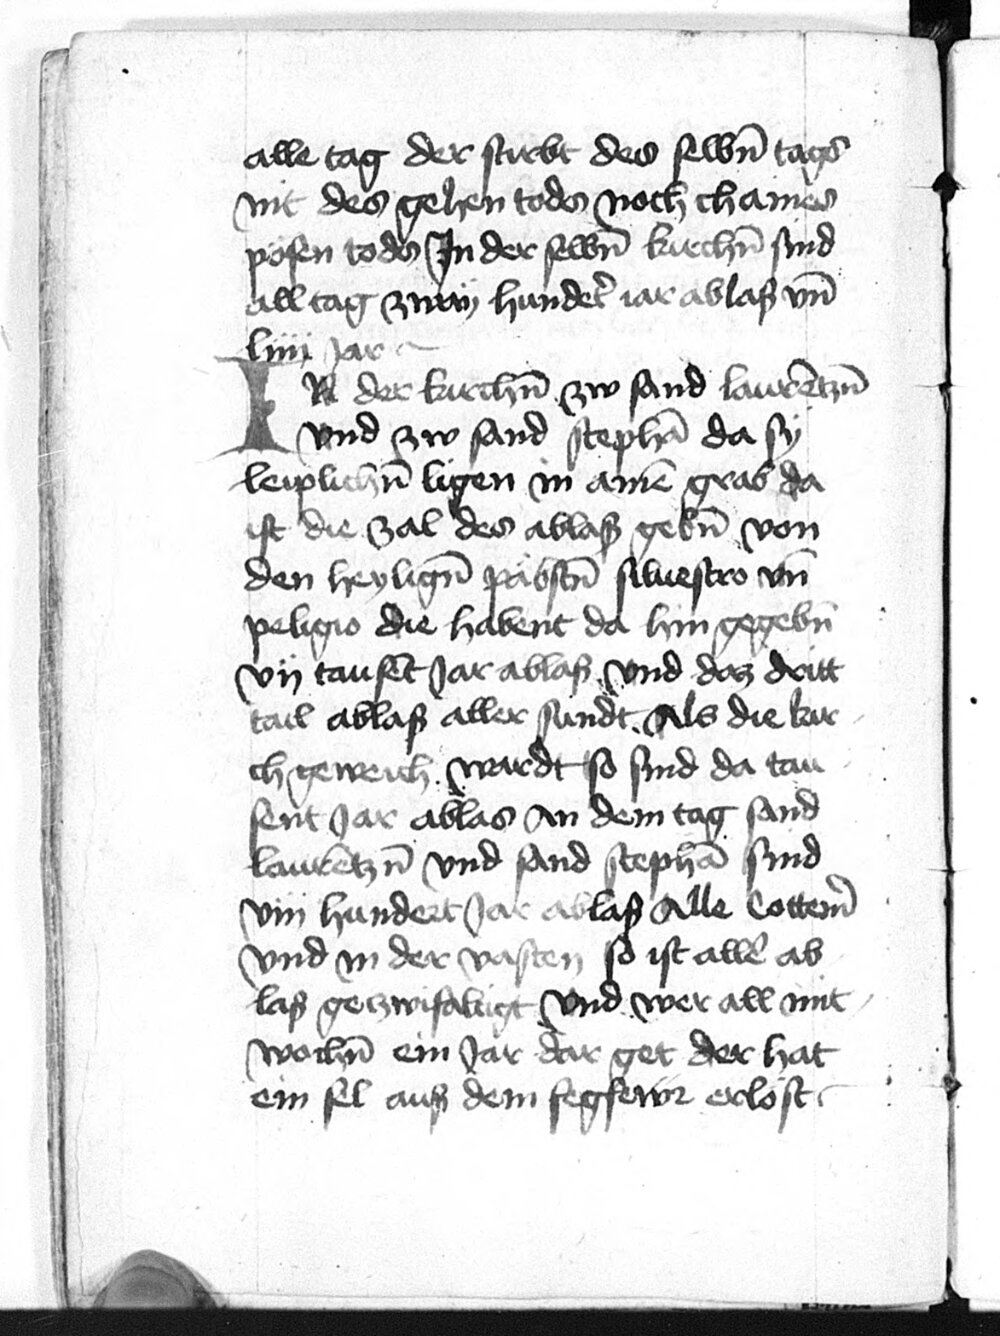 alle tag der stirbt des selbn̄ tags
nit des gehen todes noch chaines
pösen todes In der selbn̄ kirchn̄ sind
all tag zway hundert̄ iar ablaß vn̄
liiij Jar
IN der kirchn̄ zw sand laurētzn̄
vnd zw sand stephā da sy
leiplichn̄ ligen in ainē grab da
ist die zal des ablaß gebn̄ von
den heylign̄ päbstn̄ siluestro vn̄
peligio die habent da hin gegebn̄
vij tausēt Jar ablaß vnd daz dritt
tail ablaß aller sündt. Als die kir
ch geweich wardt so sind da tau
sent Jar ablas An dem tag sand
laurētzn̄ vnd sand stephā sind
viij hundert Jar ablaß Alle Cottem̄
vnd in der vasten so ist allē ab
laß getzwifaltigt vnd wer all mit
wochn̄ ein Jar dar get der hat
ein sel auß dem fegfewr erlöst